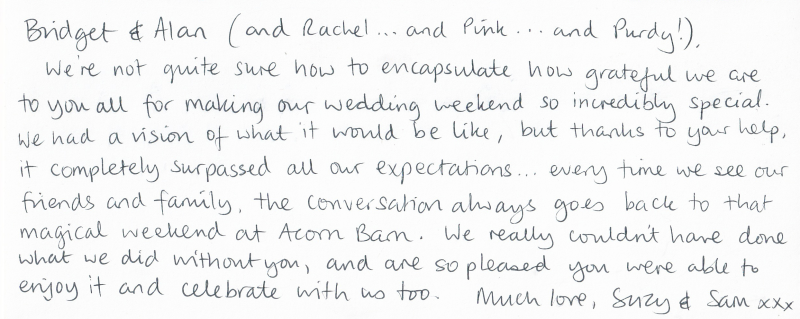 Bridget & Alan (and Rachel... and Pink... and Purdy!),
We're not quite sure how to encapsulate how grateful we are
to you all for making our wedding weekend so incredibly special.
We had a vision of what it would be like, but thanks to your help,
it completely surpassed all our expectations... every time we see our
friends and family, the conversation always goes back to that
magical weekend at Acorn Barn. We really couldn't have done
what we did without you, and are so pleased you were able to
enjoy it and celebrate with us too. Much love, Suzy & Sam xxx